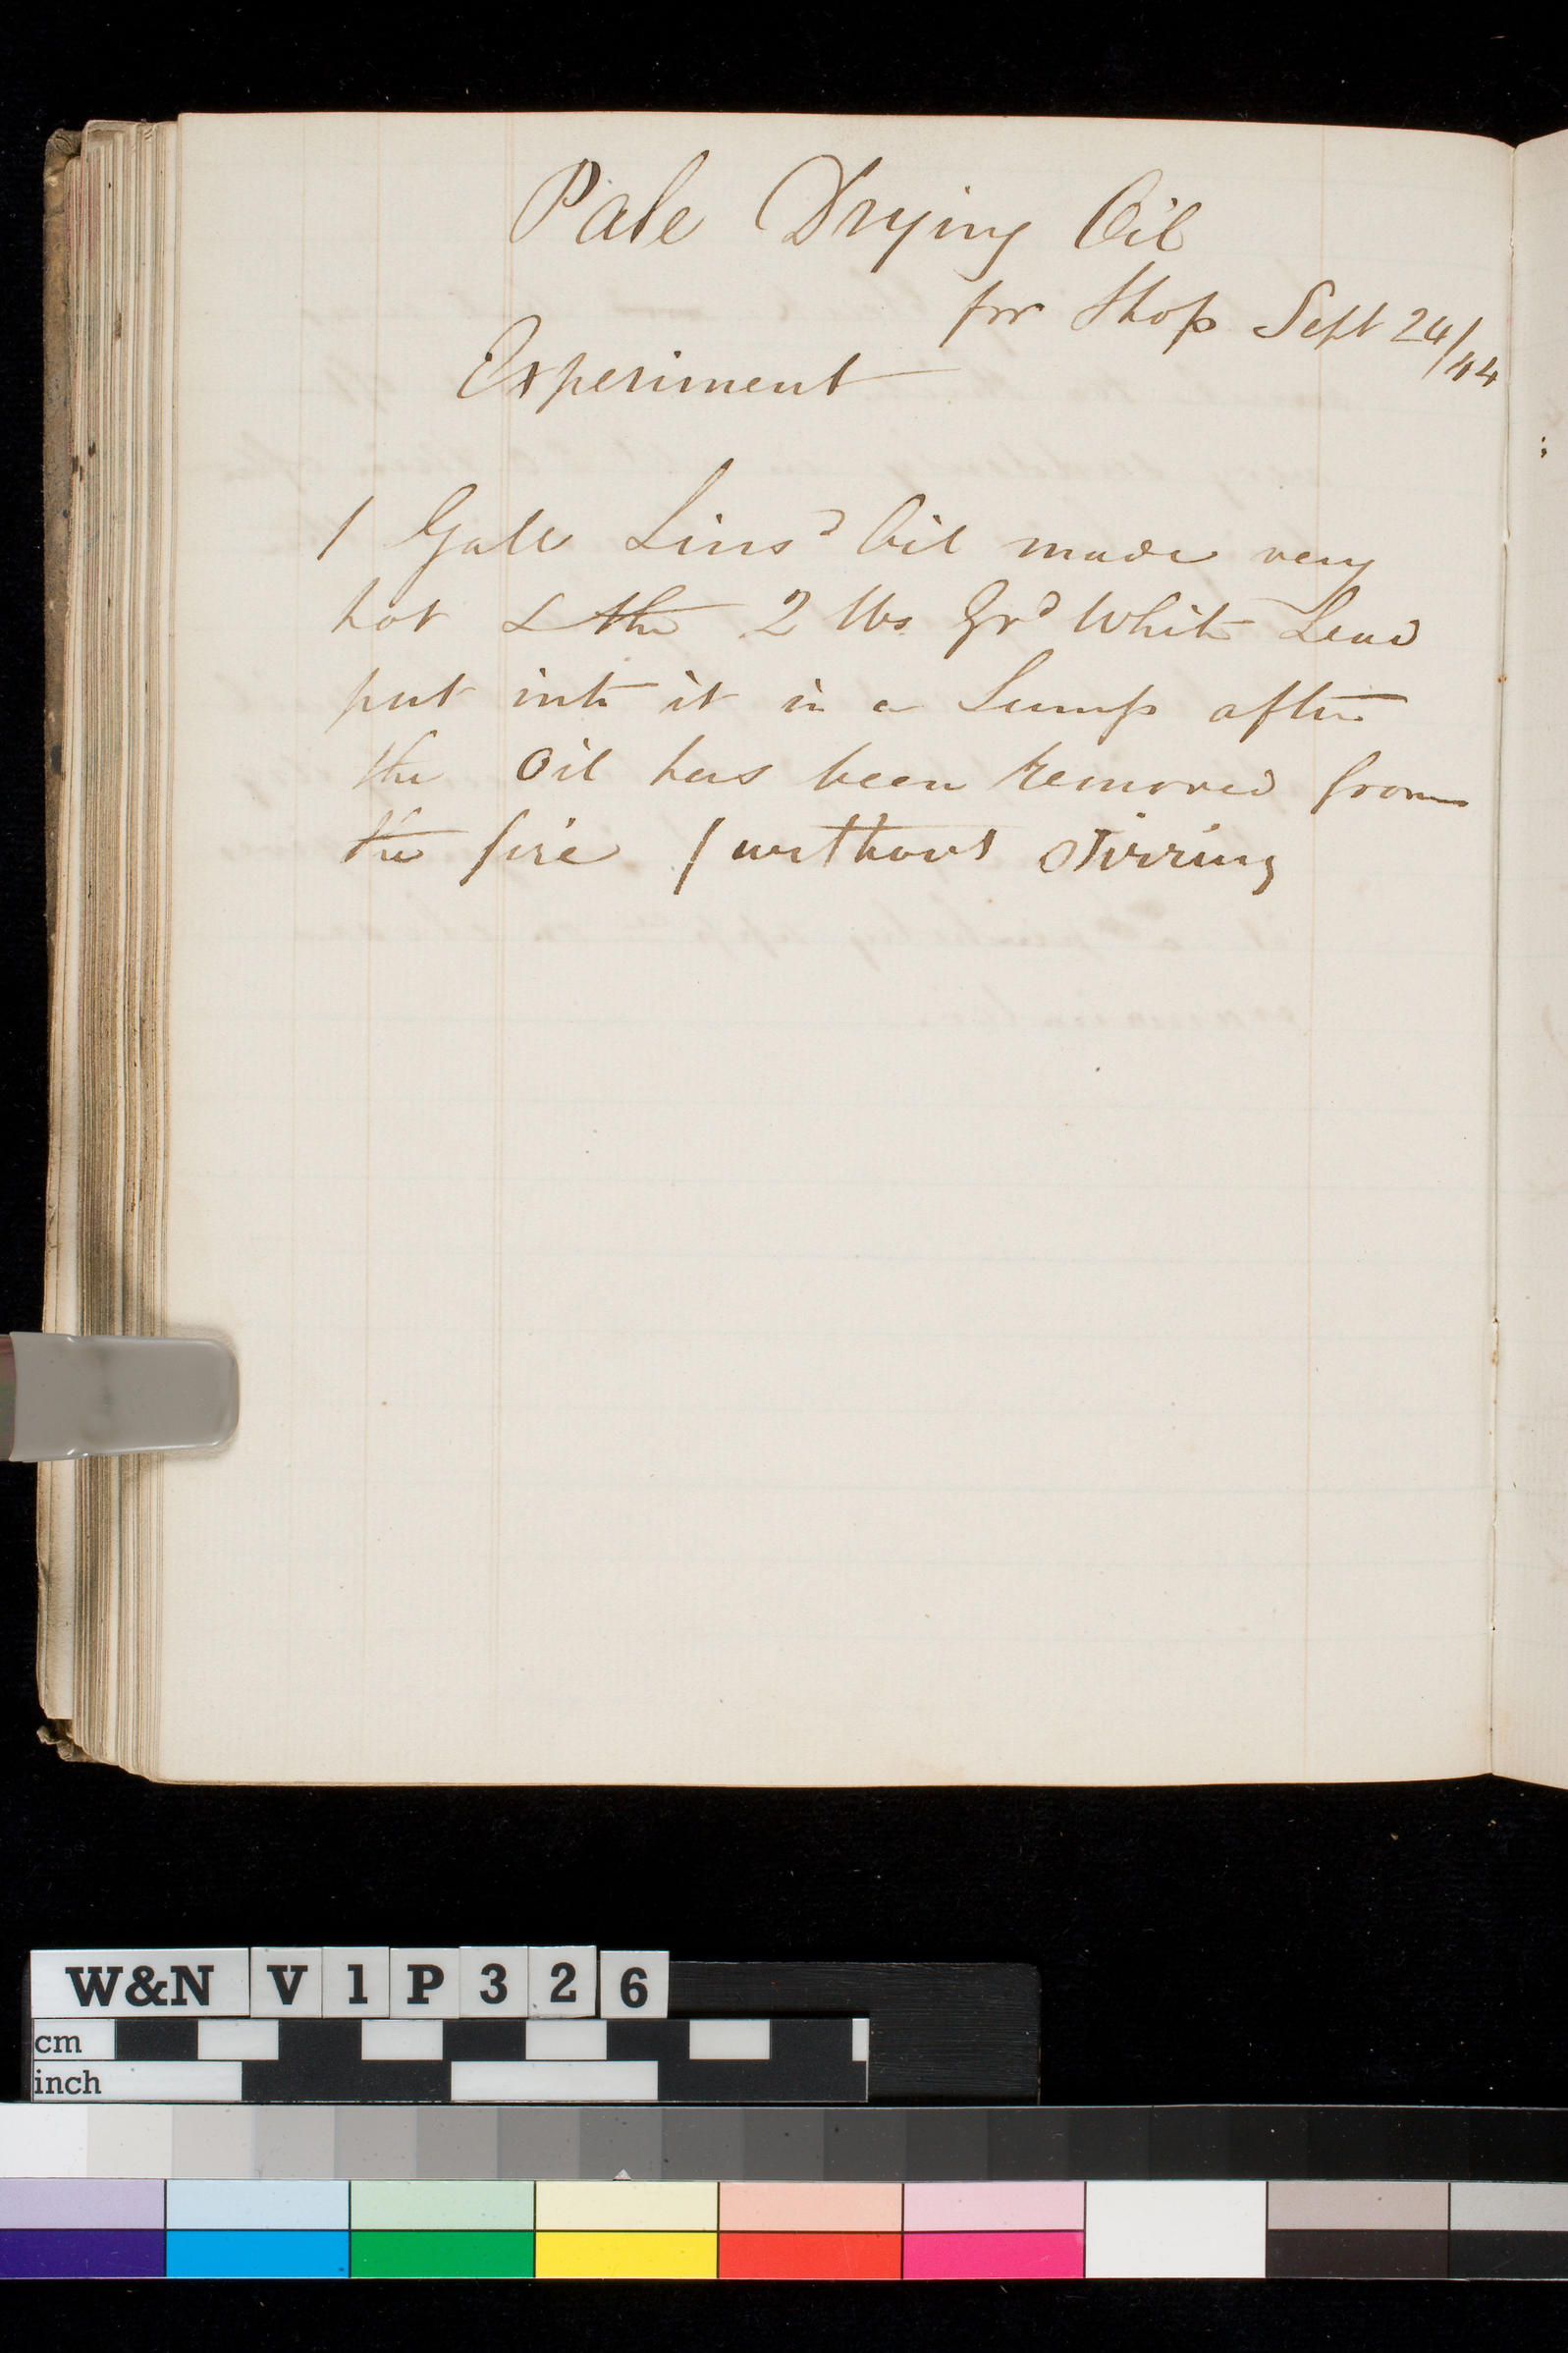 Pale Drying Oil
for Shop Sept 24/44
Experiment
1 Gall Lins^d Oil made very
hot & the 2 lbs Gr^d White Lead
put into it in a Lump after
the Oil has been removed from
the fire / without stirring
W&N V1P326
cm
inch